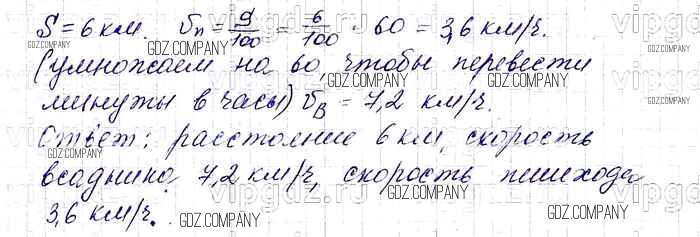 S = 6 км. Vп = 9/100 = 6/100 · 60 = 3,6 км/ч.
(умножаем на 60 чтобы перевести
минуты в часы) Vв = 7,2 км/ч.
Ответ: расстояние 6 км, скорость
всадника 7,2 км/ч, скорость пешехода
3,6 км/ч.
GDZ.COMPANY
GDZ.COMPANY
GDZ.COMPANY
GDZ.COMPANY
GDZ.COMPANY
GDZ.COMPANY
GDZ.COMPANY
GDZ.COMPANY
GDZ.COMPANY